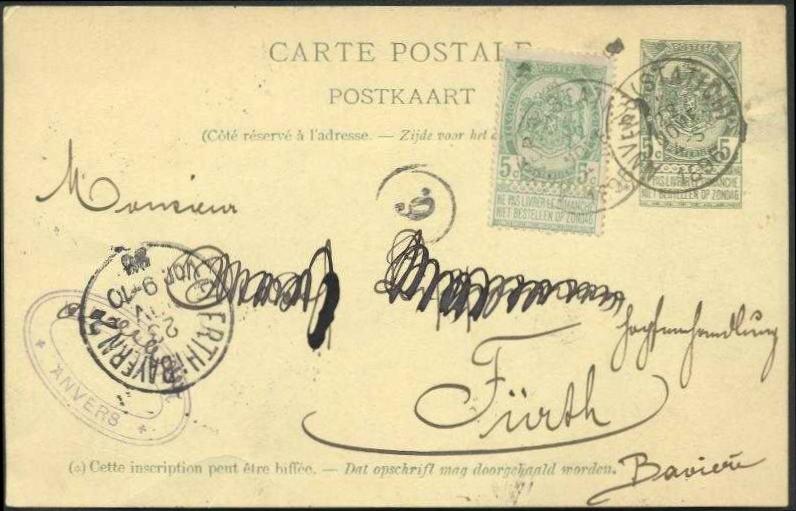 CARTE POSTALE
POSTKAART
(Côté réservé à l'adresse. — Zijde voor het
POSTES
5c 5
NE PAS LIVRER LE DIMANCHE
NIET BESTELLEN OP ZONDAG
5c 5
NE PAS LIVRER LE DIMANCHE
NIET BESTELLEN OP ZONDAG
ANVERS (STATION)
1895
9.
Monsieur
hopfenhandlung
Fürth
BAYERN
23 IV
9-10
VOR.
ANVERS
(o) Cette inscription peut être biffée. — Dat opschrift mag doorgehaald worden.
Bavière